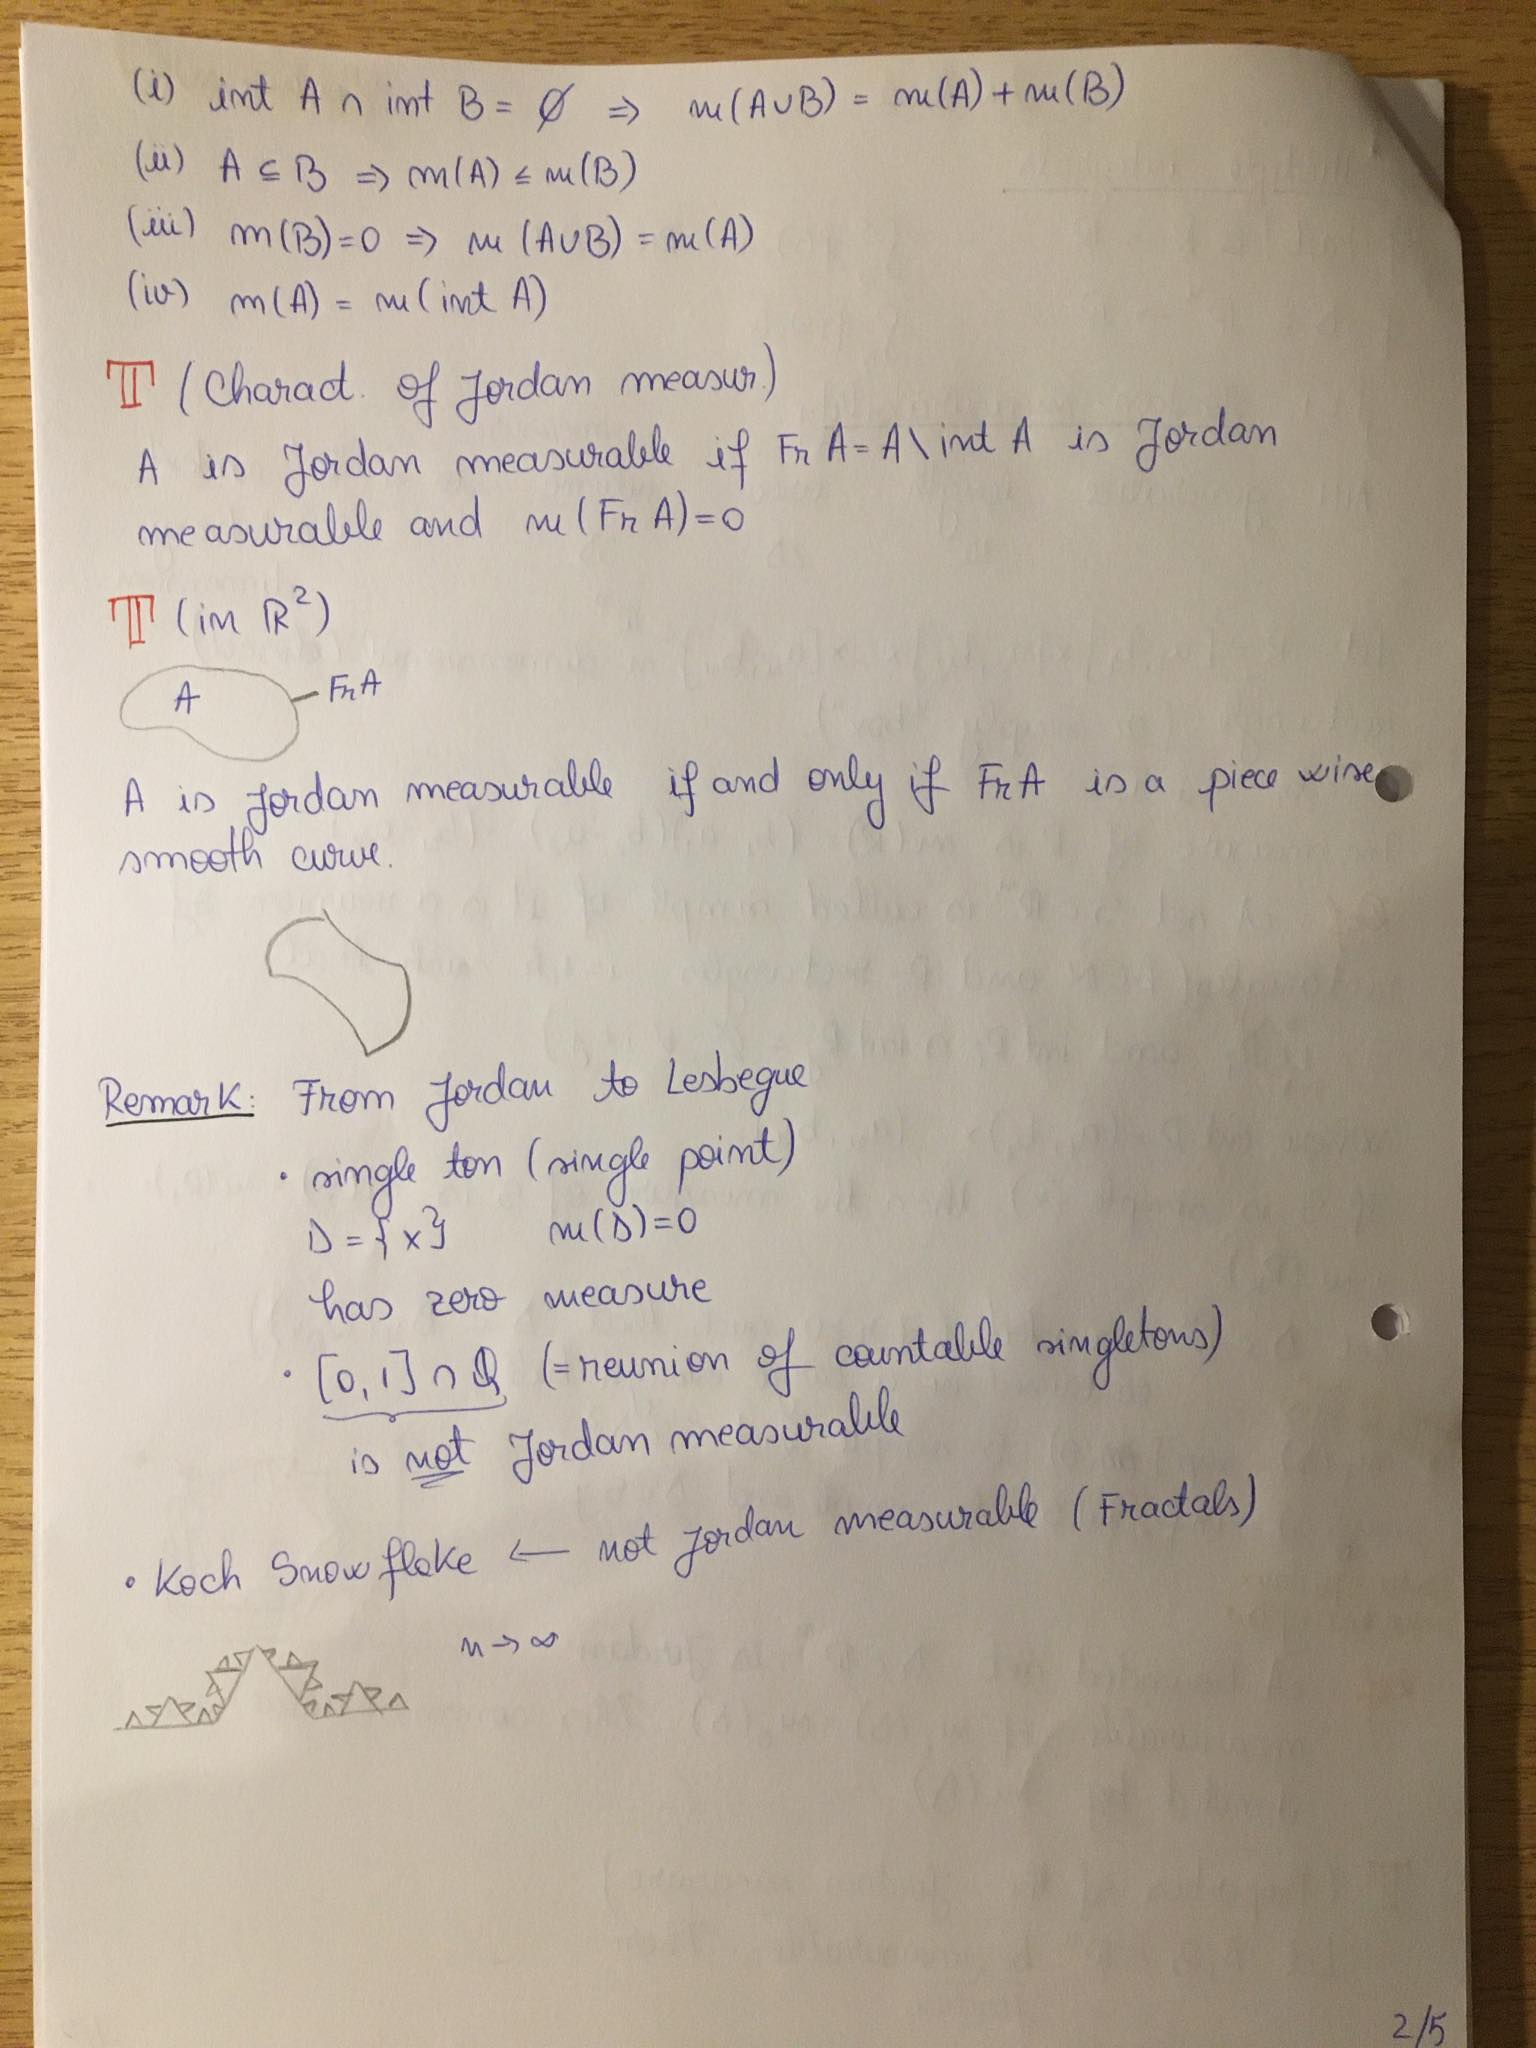 (i) int A ∩ int B = ∅ ⇒ m(A∪B) = m(A)+m(B)
(ii) A ⊆ B ⇒ m(A) ≤ m(B)
(iii) m(B)=0 ⇒ m(A∪B) = m(A)
(iv) m(A) = m(int A)
T (Charact. of Jordan measur.)
A is Jordan measurable if Fr A = A \ int A is Jordan
measurable and m(Fr A)=0
T (in ℝ²)
A
Fr A
A is Jordan measurable if and only if Fr A is a piece wise
smooth curve.
Remark: From Jordan to Lesbegue
• single ton (single point)
D = {x} m(D)=0
has zero measure
• [0,1] ∩ Q (=reunion of countable singletons)
is not Jordan measurable
• Koch Snowflake ← not Jordan measurable (Fractals)
n → ∞
2/5